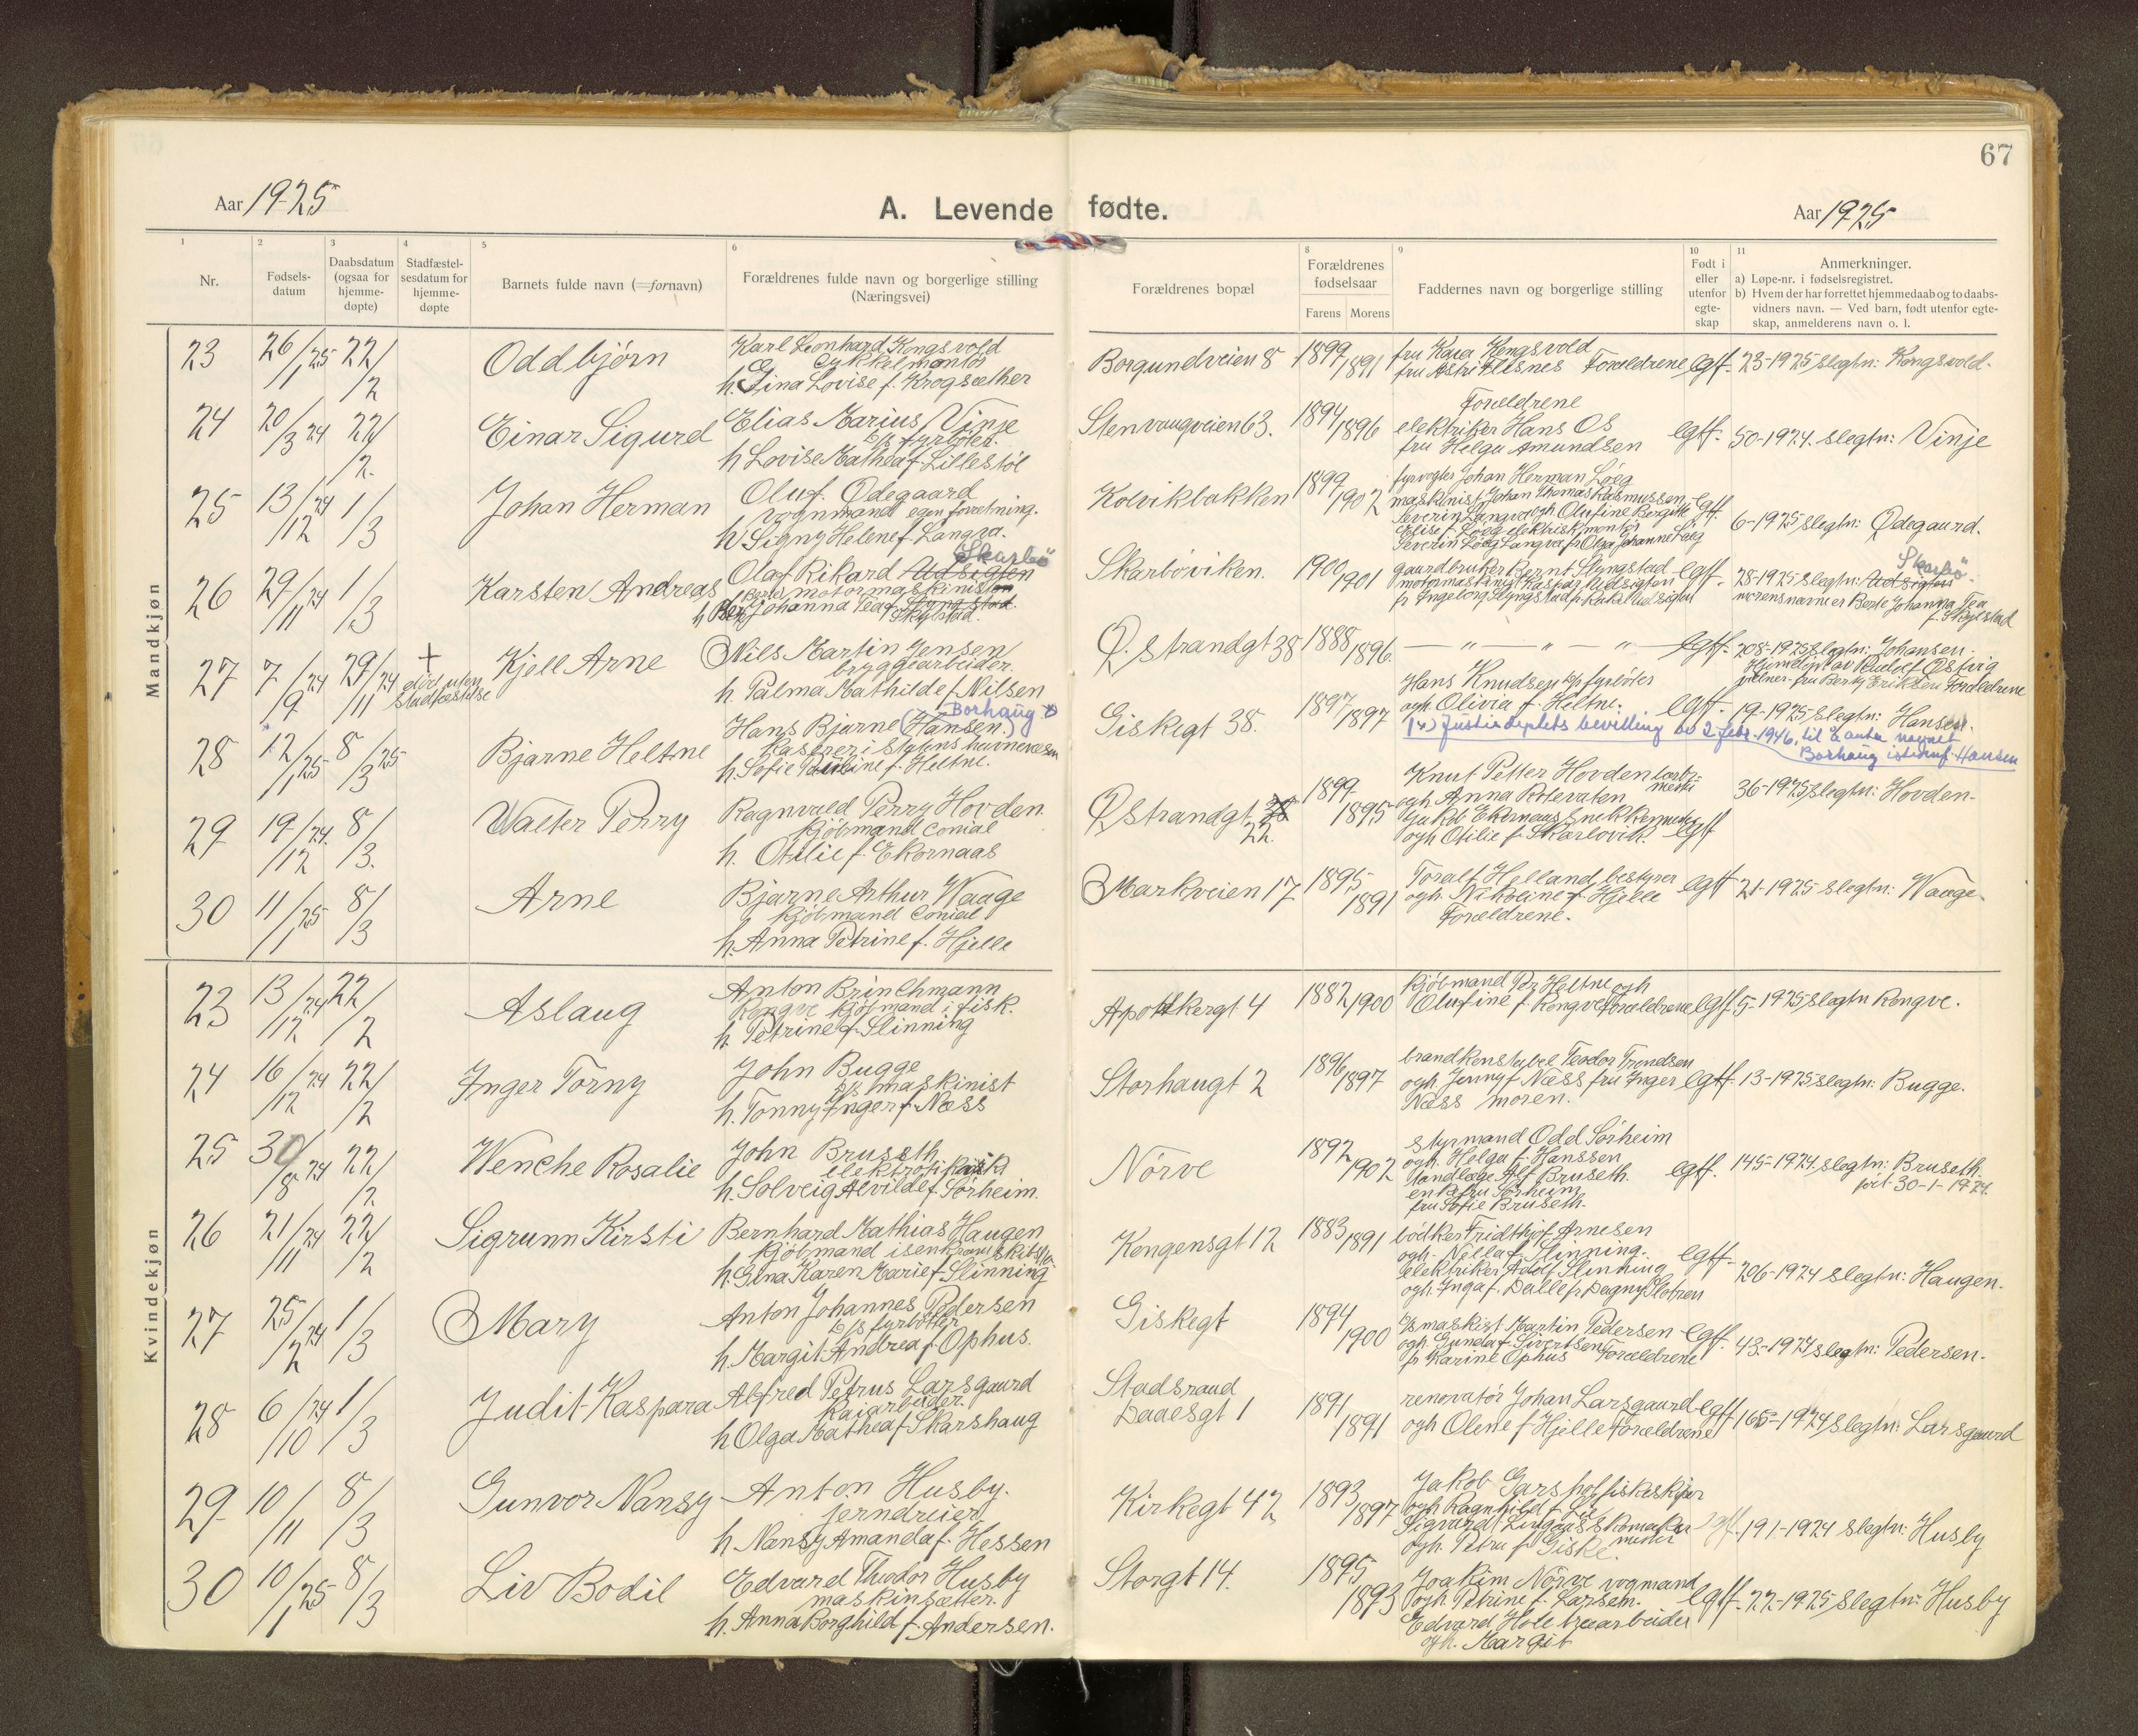 67
Aar 1925
A. Levende fødte.
Aar 1925
1 2 3 4 5 6 8 9 10 11
Nr.
Fødsels-
datum
Daabsdatum
(ogsaa for
hjemme-
døpte)
Stadfæstel-
sesdatum for
hjemme-
døpte
Barnets fulde navn (=fornavn)
Forældrenes fulde navn og borgerlige stilling
(Næringsvei)
Forældrenes bopæl
Forældrenes
fødselsaar
Farens Morens
Faddernes navn og borgerlige stilling
Født i
eller
utenfor
egte-
skap
Anmerkninger.
a) Løpe-nr. i fødselsregistret.
b) Hvem der har forrettet hjemmedaab og to daabs-
vidners navn. — Ved barn, født utenfor egte-
skap, anmelderens navn o. l.
Mandkjøn
23 26/1 25 22/2 Oddbjørn
Karl Leonhard Kongsvold
cykkelmontör
h. Gina Lovise f. Krogsæther
Borgundveien 8 1899 1891
fru Kara Kongsvold
fru Astri Flisnes Forældrene
egtf. 23-1925 slegtn: Kongsvold.
24 20/3 24 22/2 Einar Sigurd
Elias Marius Vinje
D/s fyrböter.
h Lovise Mathea f. Lillestöl
Stenvaagveien 63. 1894 1896
Forældrene
elektriker Hans Os
fru Helga Amundsen
egtf. 50-1924. slegtn: Vinje
25 13/12 24 1/3 Johan Herman
Oluf. Ødegaard
vognmand egen forretning.
h. Signy Helene f. Langva.
Kolvikbakken 1899 1902
fyrvogter Johan Herman Löeg
maskinist Johan Thomas Rasmussen
Severin Langva ogh Olufine Bergitte
Elise f. Löeg elektrisk montör
Severin Löeg Langva fr Olga Johanne Löeg
egtf. 6-1925 slegtn: Ødegaard.
26 29/11 24 1/3 Karsten Andreas
Skarbö
Olaf Rikard Udsigten
motormaskinist
h Berte Johanna Tea f. Slyngstad.
Skylstad.
Skarböviken. 1900 1901
gaardbruker Bernt Slyngstad
motormaskinist Kaspar Udsigten
fr Ingeborg Slyngstad fr Rakel Udsigten
egtf. 28-1925 slegtn: Udsigten Skarbö.
morens navn er Berte Johanna Tea
f. Skylstad
27 7/9 24 29/11 24
+
död uten
stadfæstelse
Kjell Arne
Nils Martin Jensen
bryggearbeider.
h. Palma Mathilde f. Nilsen
Ø. Strandgt 38 1888 1896.
— " — " — " —
egtf. 208-1925 slegtn: Johansen.
Hjemedöpt av Rudolf Østvig
28 12/1 25 8/3 25 Bjarne Heltne
Borhaug
Hans Bjarne (Hansen.)
Kasserer i statens havnevæsen
h. Sofie Pauline f. Heltne.
Giskegt 38. 1897 1897
Hans Knudsen D/s fyrböter
ogh Olivia f. Heltne.
egtf. 19-1925 slegtn: Hansen.
Justisdeptets bevilling av 2 febr. 1946, til å anta navnet
Borhaug istedenf. Hansen
29 19/12 24. 8/3. Walter Perry
Ragnvald Perry Hovden.
kjöbmand conial
h. Otilie f. Ekornaas
Ø Strandgt 38
22. 1899 1895
Knut Petter Hovden
ogh Anna Rotevaten
Jakob Ekornaas snekkermester
ogh Otilie f. Skarlovik.
egtf 36-1925 slegtn: Hovden.
30 11/1 25 8/3 Arne
Bjarne Arthur Waage
kjöbmand conial
h. Anna Petrine f. Hjelle
Markveien 17 1895 1891
Toralf Helland bestyrer
ogh. Nikoline f. Hjelle
Forældrene.
egtf 21-1925 slegtn: Waage.
Kvindekjøn
23 13/12 24 22/2 Aslaug
Anton Brinchmann
Rongve kjöbmand i fisk.
h. Petrine f. Slinning
Apotekergt 4 1882 1900
kjöbmand Per Heltne ogh
Olufine f. Rongve Forældrene
egtf. 5-1925 slegtn Rongve.
24 16/12 24 22/2 Inger Torny
John Bugge
D/s maskinist
h. Tonny Inger f. Næss
Storhaugt 2 1896 1897
brandkonstabel Teodor Trondsen
ogh Jenny f. Næss fru Inger
Næss moren.
egtf. 13-1925 slegtn: Bugge.
25 30/8 24 22/2 Wenche Rosalie
John Bruseth
h. Solveig Alvilde f. Sörheim.
Nörve 1892 1902
styrmand Odd Sörheim
ogh. Helga f. Hanssen
tandlæge Alf Bruseth.
enkefru Sörheim
fru Sofie Bruseth.
egtf. 145-1924. slegtn: Bruseth.
30-1-1924.
26 21/11 24 22/2 Sigrunn Kirsti
Bernhard Mathias Haugen
h. Gina Karen Marie f. Slinning
Kongensgt 12 1883 1891
bödker Fridthjof Arnesen
ogh. Nella f. Slinning.
elektriker Adolf Slinning
ogh. Inga f. Dalle fr Dagny Slotnes
egtf. 206-1924 slegtn: Haugen.
27 25/2 24 1/3 Mary
Anton Johannes Pedersen
D/s fyrböter
h. Margit Andrea f. Ophus.
Giskegt 1894 1900
D/s maskist Martin Pedersen
ogh. Gunda f. Sivertsen
fr Karine Ophus Forældrene
egtf. 43-1924 slegtn: Pedersen.
28 6/10 24 1/3 Judit-Kaspara
Alfred Petrus Larsgaard
Kaiarbeider.
h Olga Mathea f. Skarshaug
Stadsraad
Daaesgt 1 1891 1891
renovatör Johan Larsgaard
ogh Oline f Hjelle Forældrene
egtf 165-1924 slegtn: Larsgaard
29 10/11 8/3 Gunvor Nansy
Anton Husby.
jerndreier.
h. Nansy Amanda f. Hessen
Kirkegt 42 1893 1897
Jakob Garshol fiskeskjper
ogh Ragnhild f.
ogh. Petra f Giske.
egtf. 191-1924 slegtn: Husby
30 10/1 25 8/3 Liv Bodil
Edvard Theodor Husby
maskinsætter.
h. Anna Borghild f. Andersen.
Storgt 14. 1895 1893
Joakim Nörve vogmand
ogh Petrine f. Larsen.
Edvard Hole træarbeider
ogh. Margit
egtf. 22-1925 slegtn: Husby